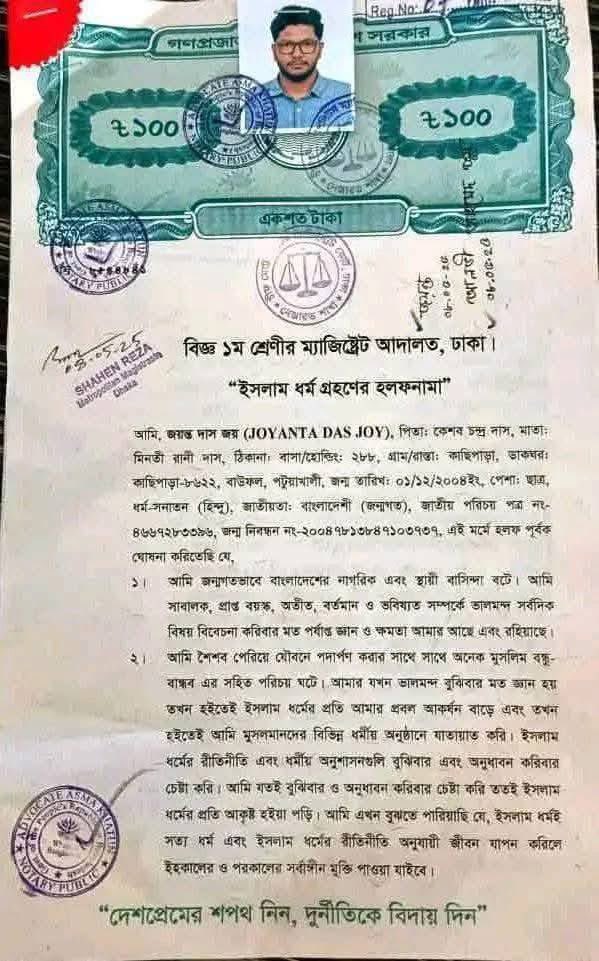 Reg.No:
গণপ্রজা শ সরকার
৳১০০ ৳১০০
একশত টাকা
ADVOCATE ASMA
NOTARY PUBLIC
০৮-০৫-২৫
০৮-০৫-২৫
08-05-25
SHAHEN REZA
Metropolitan Magistrate
Dhaka
বিজ্ঞ ১ম শ্রেণীর ম্যাজিষ্ট্রেট আদালত, ঢাকা।
“ইসলাম ধর্ম গ্রহণের হলফনামা”
আমি, জয়ন্ত দাস জয় (JOYANTA DAS JOY), পিতা: কেশব চন্দ্র দাস, মাতা:
মিনতী রানী দাস, ঠিকানা: বাসা/হোল্ডিং: ২৮৮, গ্রাম/রাস্তা: কাছিপাড়া, ডাকঘর:
কাছিপাড়া-৮৬২২, বাউফল, পটুয়াখালী, জন্ম তারিখ: ০১/১২/২০০৪ইং, পেশা: ছাত্র,
ধর্ম-সনাতন (হিন্দু), জাতীয়তা: বাংলাদেশী (জন্মগত), জাতীয় পরিচয় পত্র নং-
৪৬৬৭২৮৩৩৯৬, জন্ম নিবন্ধন নং-২০০৪৭৮১৩৮৪৭১০৩৭৩৭, এই মর্মে হলফ পূর্বক
ঘোষনা করিতেছি যে,
১। আমি জন্মগতভাবে বাংলাদেশের নাগরিক এবং স্থায়ী বাসিন্দা বটে। আমি
সাবালক, প্রাপ্ত বয়স্ক, অতীত, বর্তমান ও ভবিষ্যত সম্পর্কে ভালমন্দ সর্বদিক
বিষয় বিবেচনা করিবার মত পর্যাপ্ত জ্ঞান ও ক্ষমতা আমার আছে এবং রহিয়াছে।
২। আমি শৈশব পেরিয়ে যৌবনে পদার্পণ করার সাথে সাথে অনেক মুসলিম বন্ধু-
বান্ধব এর সহিত পরিচয় ঘটে। আমার যখন ভালমন্দ বুঝিবার মত জ্ঞান হয়
তখন হইতেই ইসলাম ধর্মের প্রতি আমার প্রবল আকর্ষন বাড়ে এবং তখন
হইতেই আমি মুসলমানদের বিভিন্ন ধর্মীয় অনুষ্ঠানে যাতায়াত করি। ইসলাম
ধর্মের রীতিনীতি এবং ধর্মীয় অনুশাসনগুলি বুঝিবার এবং অনুধাবন করিবার
চেষ্টা করি। আমি যতই বুঝিবার ও অনুধাবন করিবার চেষ্টা করি ততই ইসলাম
ধর্মের প্রতি আকৃষ্ট হইয়া পড়ি। আমি এখন বুঝতে পারিয়াছি যে, ইসলাম ধর্মই
সত্য ধর্ম এবং ইসলাম ধর্মের রীতিনীতি অনুযায়ী জীবন যাপন করিলে
ইহকালের ও পরকালের সর্বাঙ্গীন মুক্তি পাওয়া যাইবে।
ADVOCATE ASMA
NOTARY PUBLIC
“দেশপ্রেমের শপথ নিন, দুর্নীতিকে বিদায় দিন”